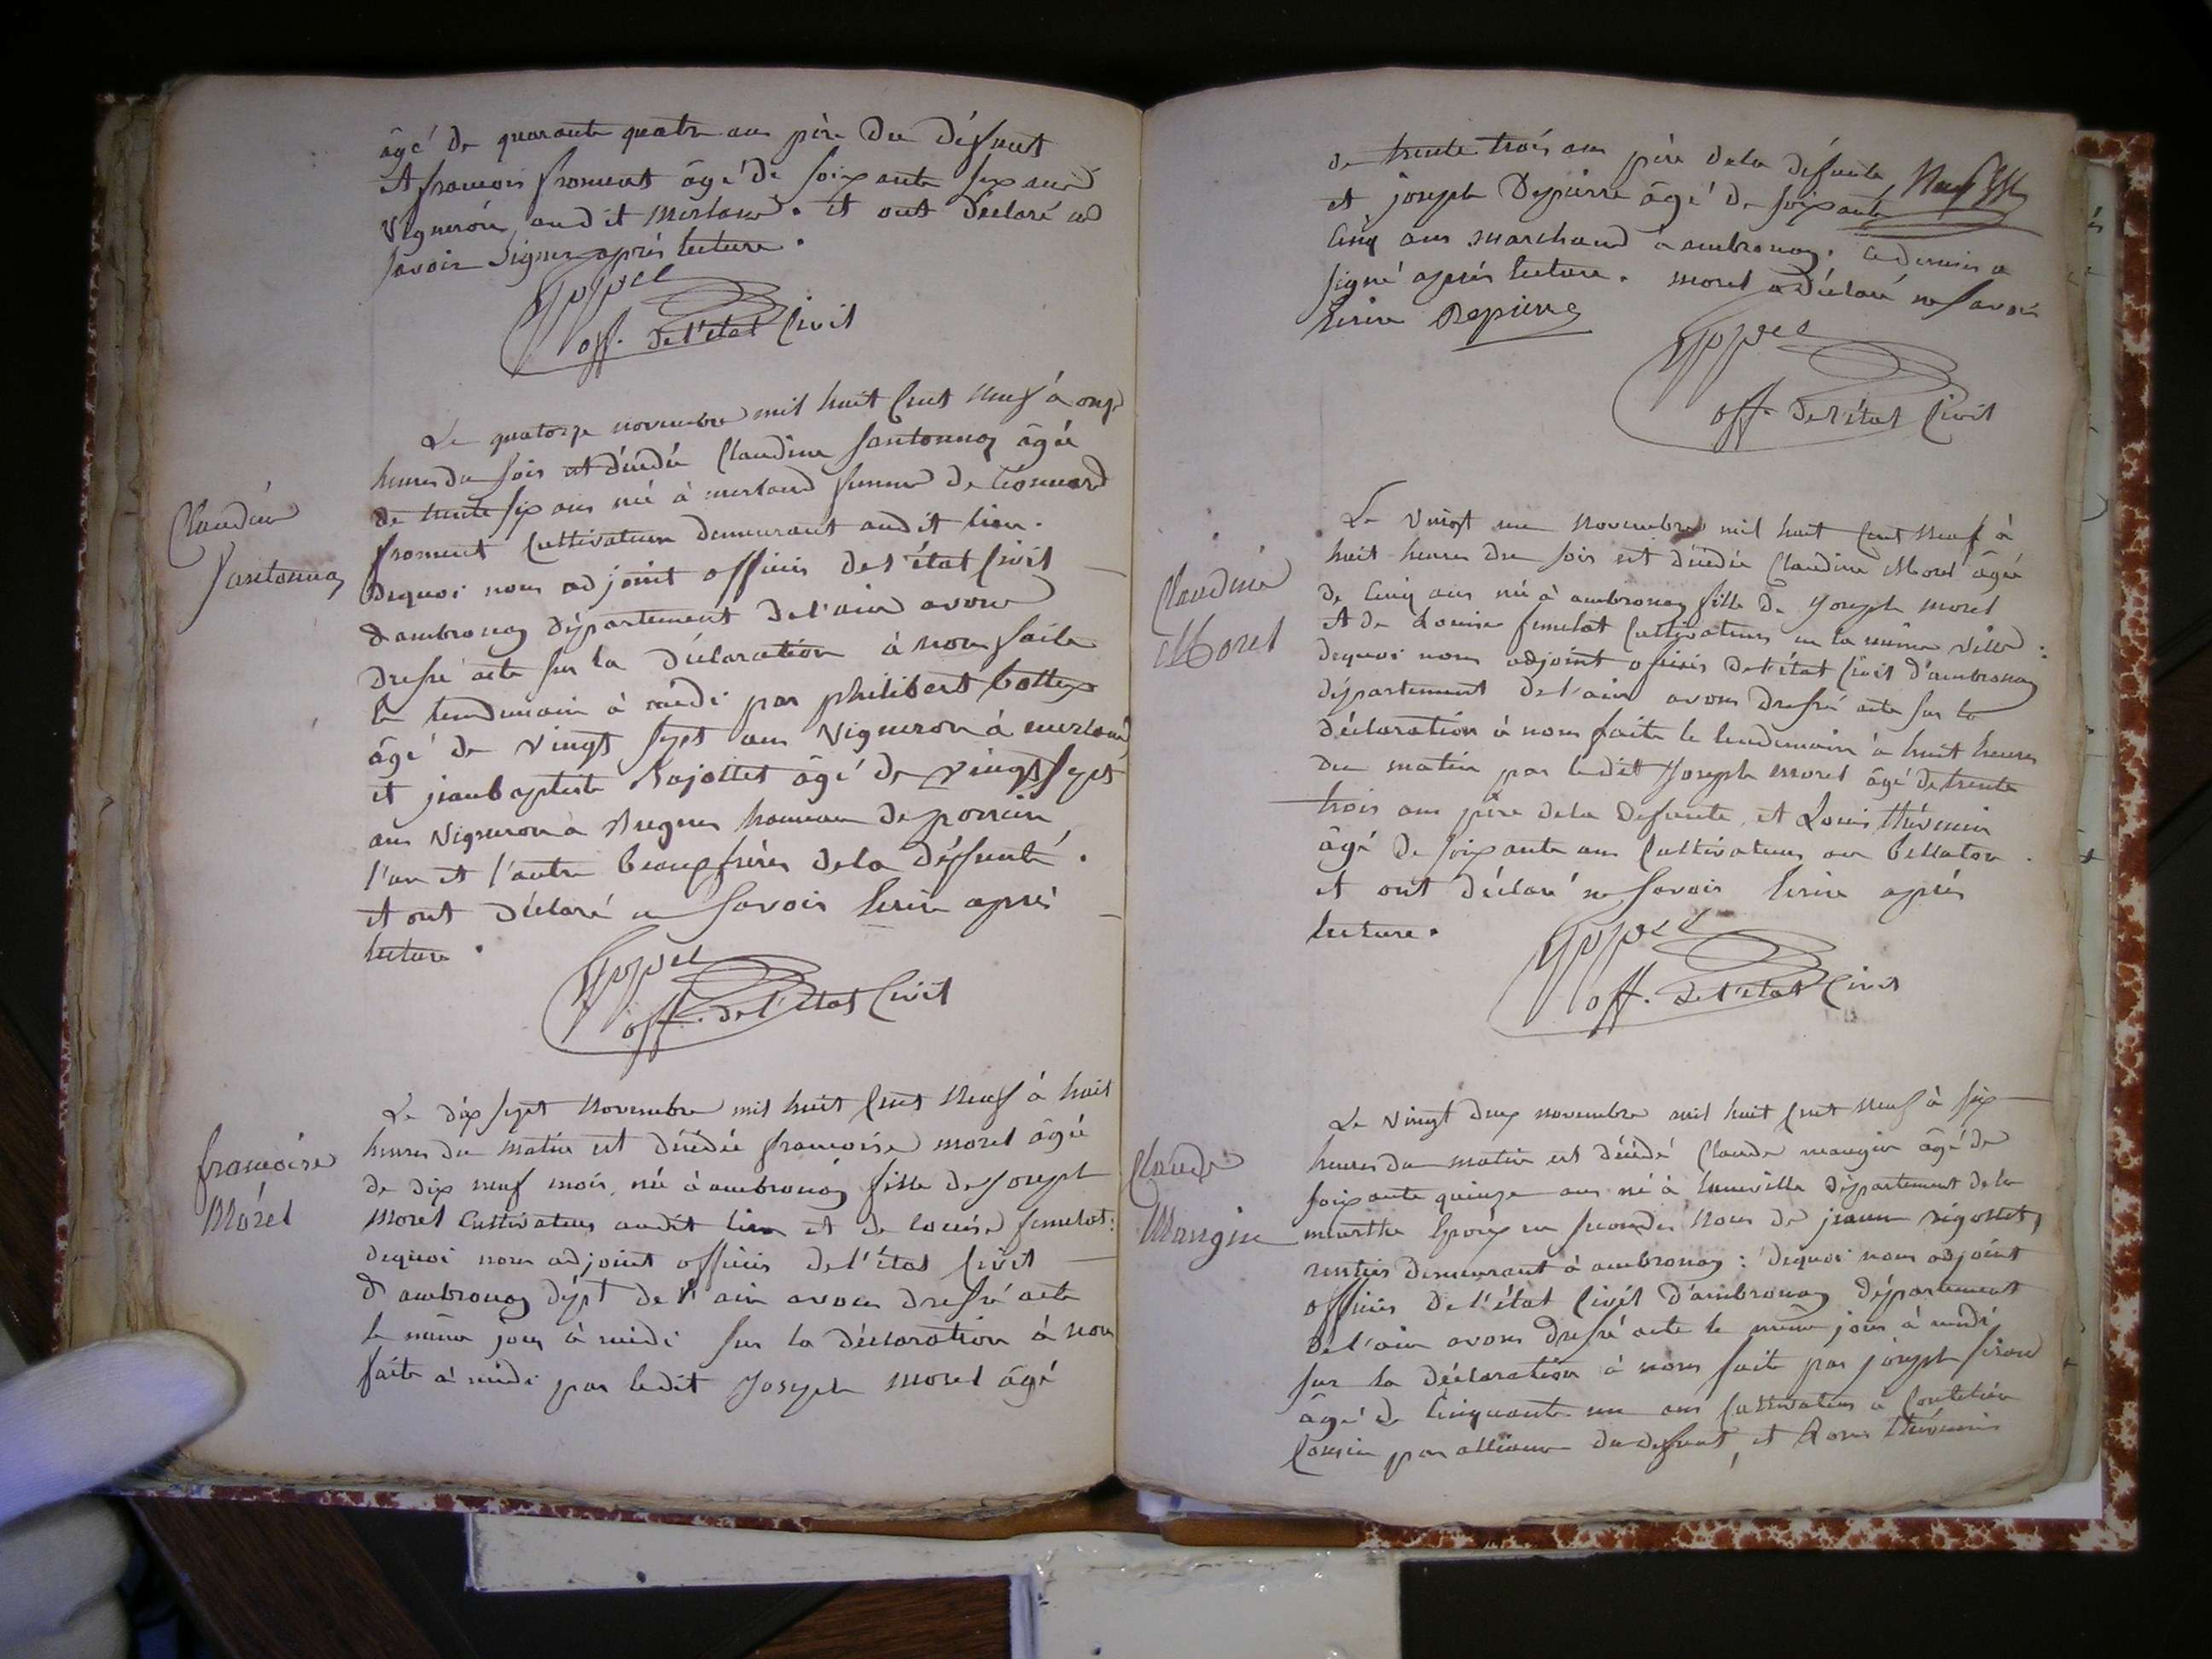 âgé de quarante quatre ans père du défunt
et françois froment âgé de soixante six ans
vigneron audit merland. et ont déclaré ne
savoir signer après lecture.
off. de l'état Civil
Claudine
Santonnaz
Le quatorze novembre mil huit Cent neuf à onze
heures du soir est décédée Claudine Santonnaz âgée
de trente six ans née à merland femme de Léonnard
froment Cultivateur demeurant audit lieu.
dequoi nous adjoint officier de l'état Civil
d'ambronay département de l'ain avons
dressé acte sur la déclaration à nous faite
le lendemain à midi par philibert bottex
âgé de vingt sept ans vigneron à merland
et jean baptiste âgé de vingt sept
ans vigneron à hameau de
l'un et l'autre beaux frères de la défunte.
et ont déclaré ne savoir écrire après
lecture.
off. de l'état Civil
françoise
Morel
Le dix sept novembre mil huit Cent neuf à huit
heures du matin est décédée françoise morel âgée
de dix neuf mois, née à ambronay fille de Joseph
Morel Cultivateur audit lieu et de louise femelat:
dequoi nous adjoint officier de l'état Civil
d'ambronay dépt de l'ain avons dressé acte
le même jour à midi sur la déclaration à nous
faite à midi par ledit Joseph morel âgé
de trente trois ans père de la défunte
et joseph Depierre âgé de soixante
Cinq ans marchand à ambronay. Ce dernier a
signé après lecture. morel a déclaré ne savoir
écrire Depierre
off. de l'état Civil
Claudine
Morel
Le vingt un novembre mil huit Cent neuf à
huit heures du soir est décédée Claudine Morel âgée
de Cinq ans née à ambronay fille de Joseph morel
et de Louise femelat Cultivateurs en la même ville:
dequoi nous adjoint officier de l'état Civil d'ambronay
département de l'ain avons dressé acte sur la
déclaration à nous faite le lendemain à huit heures
du matin par ledit Joseph morel âgé de trente
trois ans père de la défunte, et Louis thévenin
âgé de soixante ans Cultivateur au bellaton.
et ont déclaré ne savoir écrire après
lecture.
off. de l'état Civil
Claude
Mangin
Le vingt deux novembre mil huit Cent neuf à six
heures du matin est décédé Claude mangin âgé de
soixante quinze ans né à luneville département de la
meurthe Epoux en secondes noces de jeanne rigollet,
rentier demeurant à ambronay: dequoi nous adjoint
officier de l'état Civil d'ambronay département
de l'ain avons dressé acte le même jour à midi
sur la déclaration à nous faite par joseph
âgé de Cinquante un ans Cultivateur à
Cousin par alliance du défunt, et Louis thévenin